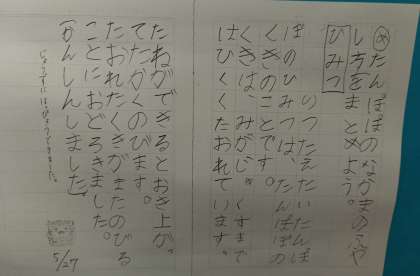 めたんぽぽのなかまのふや
し方をまとめよう。
ひみつ
いつたえたいたんぽ
ぽのひみつは、たんぽぽの
くきのことです。
くきは、みがじゅくすまで
はひくくたおれています。
たねができるとおき上が
てたかくのびます。
たおれたくきがまたのびる
ことにおどろきました。
かんしんしました。
5/27